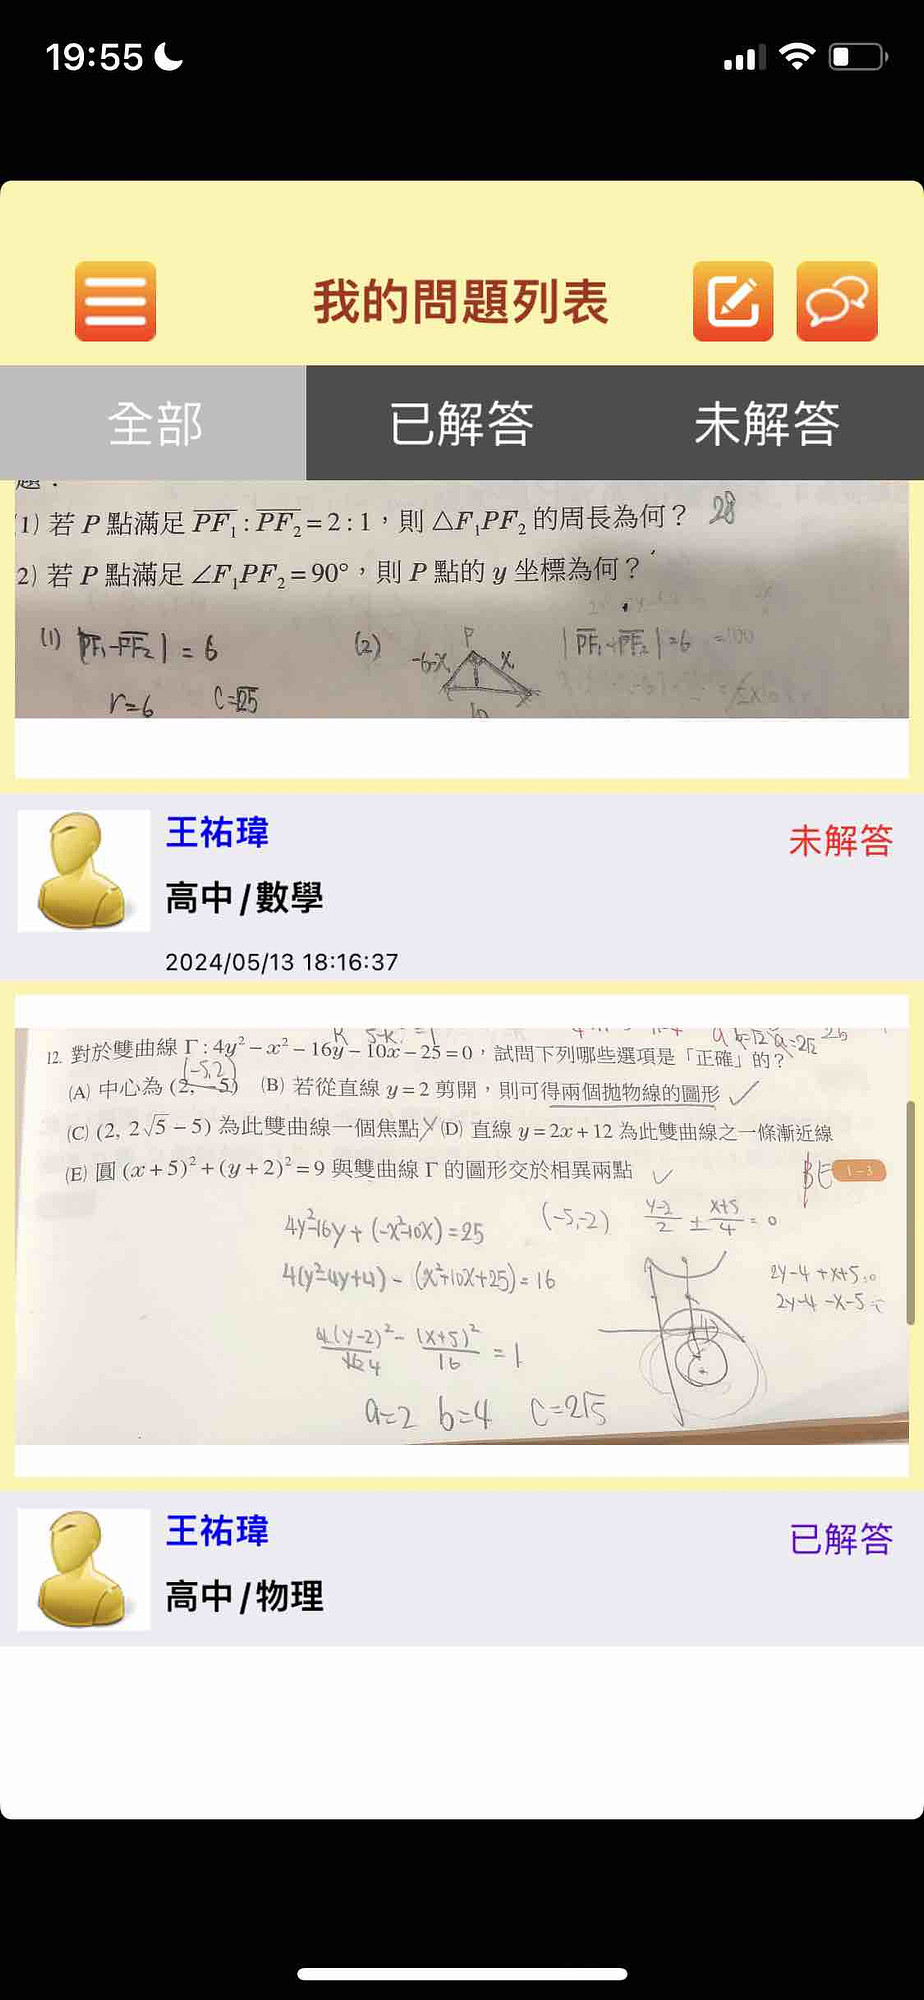 19:55
我的問題列表
全部 已解答 未解答
題:
1) 若 P 點滿足 PF₁ : PF₂ = 2 : 1,則 △F₁PF₂ 的周長為何? 28
2) 若 P 點滿足 ∠F₁PF₂ = 90°,則 P 點的 y 坐標為何?
(1) |PF₁-PF₂| = 6 (2) P |PF₁-PF₂|=6 =100
r=6 C=√25 10
王祐瑋 未解答
高中/數學
2024/05/13 18:16:37
12. 對於雙曲線 Γ : 4y² − x² − 16y − 10x − 25 = 0,試問下列哪些選項是「正確」的?
(-5,2)
(A) 中心為 (2, −5) (B) 若從直線 y = 2 剪開,則可得兩個拋物線的圖形 ✓
(C) (2, 2√5 − 5) 為此雙曲線一個焦點 ✗ (D) 直線 y = 2x + 12 為此雙曲線之一條漸近線
(E) 圓 (x + 5)² + (y + 2)² = 9 與雙曲線 Γ 的圖形交於相異兩點 ✓ BE 1-3
4y²-16y + (-x²-10x) = 25 (-5,-2) y-2/2 ± x+5/4 = 0
4(y²-4y+4) - (x²+10x+25) = 16 2y-4+x+5=0
2y-4-x-5=
4(y-2)²/16 4 - (x+5)²/16 = 1
a=2 b=4 c=2√5
王祐瑋 已解答
高中/物理